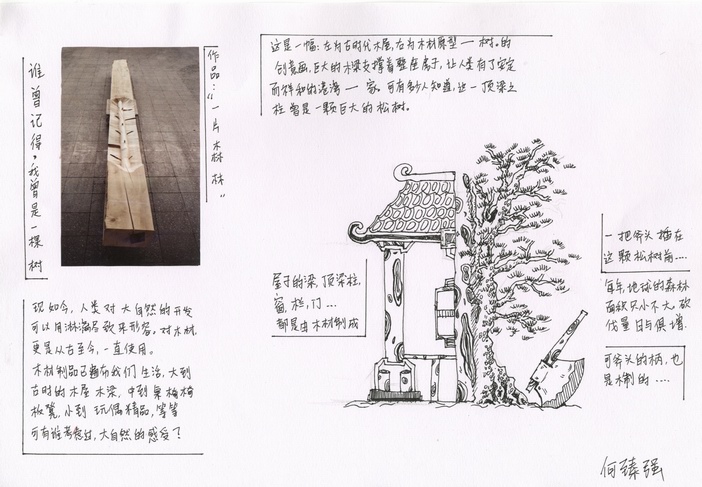 谁曾记得,我曾是一棵树
作品:“一片森林”
这是一幅:左为古时代木屋,右为木材原型一树。的
创意画,巨大的木梁支撑着整座房子,让人类有了安定
而祥和的港湾一家。可有多少人知道,这一顶梁之
柱曾是一颗巨大的松树。
屋子的梁,顶梁柱,
窗,栏,门...
都是由木材制成
一把斧头插在
这颗松树前....
每年,地球的森林
面积只小不大,砍
伐量日与俱增.
可斧头的柄,也
是木制的....
现如今,人类对大自然的开发
可以用淋漓尽致来形容。对木材,
更是从古至今,一直使用。
木材制品已遍布我们生活,大到
古时的木屋木梁,中到桌椅
板凳,小到玩偶精品,等等
可有谁考虑过,大自然的感受?
何臻强